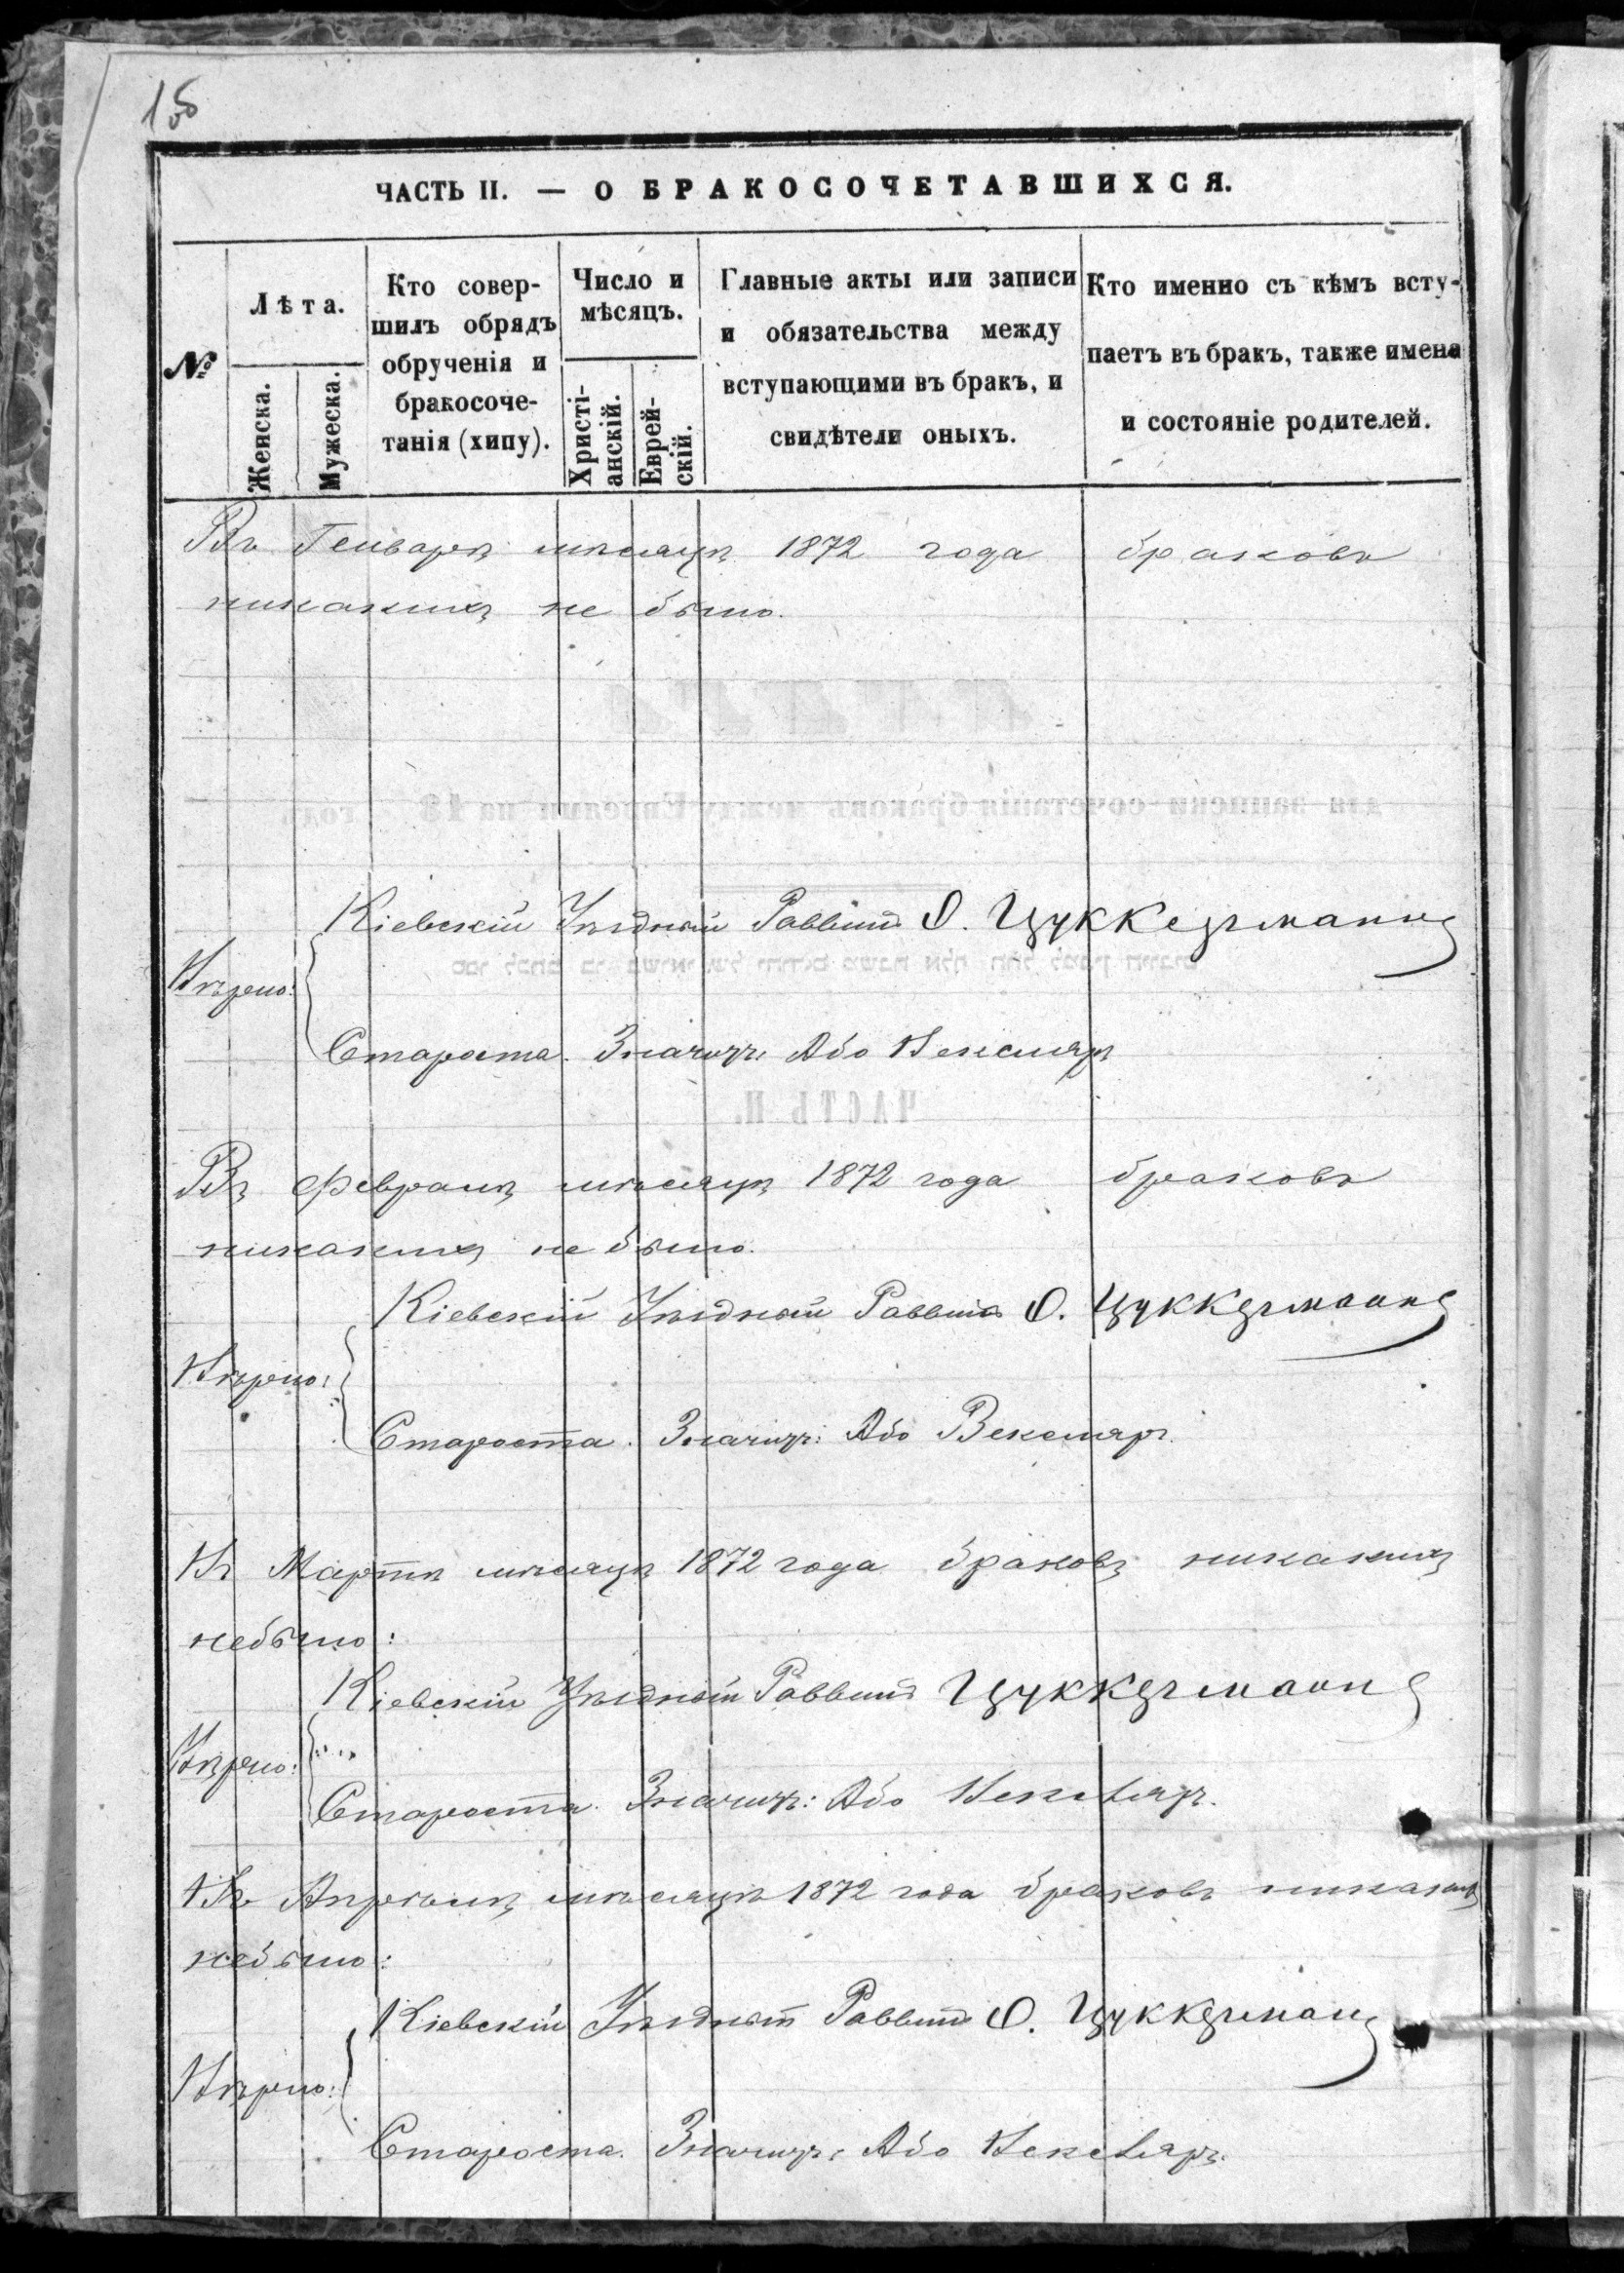 15
ЧАСТЬ II. — О БРАКОСОЧЕТАВШИХСЯ.
№
Лѣта.
Женска.
Мужеска.
Кто совер-
шилъ обрядъ
обрученія и
бракосоче-
танія (хипу).
Число и
мѣсяцъ.
Христі-
анскій.
Еврей-
скій.
Главные акты или записи
и обязательства между
вступающими въ бракъ, и
свидѣтели оныхъ.
Кто именно съ кѣмъ всту-
паетъ въ бракъ, также имена
и состояніе родителей.
Въ Генварѣ мѣсяцѣ 1872 года браковъ
никакихъ не было.
Кіевскій Уѣздный Раввинъ О. Цуккерманъ
Вѣрно:
Староста Або Вексляръ
ЧАСТЬ II.
Въ Февралѣ мѣсяцѣ 1872 года браковъ
никакихъ не было.
Кіевскій Уѣздный Раввинъ О. Цуккерманъ
Вѣрно:
Староста Або Вексляръ
Въ Мартѣ мѣсяцѣ 1872 года браковъ никакихъ
небыло:
Кіевскій Уѣздный Раввинъ Цуккерманъ
Вѣрно:
Староста Або Вексляръ.
Въ Апрѣлѣ мѣсяцѣ 1872 года браковъ никакихъ
небыло:
Кіевскій Уѣздный Раввинъ О. Цуккерманъ
Вѣрно:
Староста Або Вексляръ.